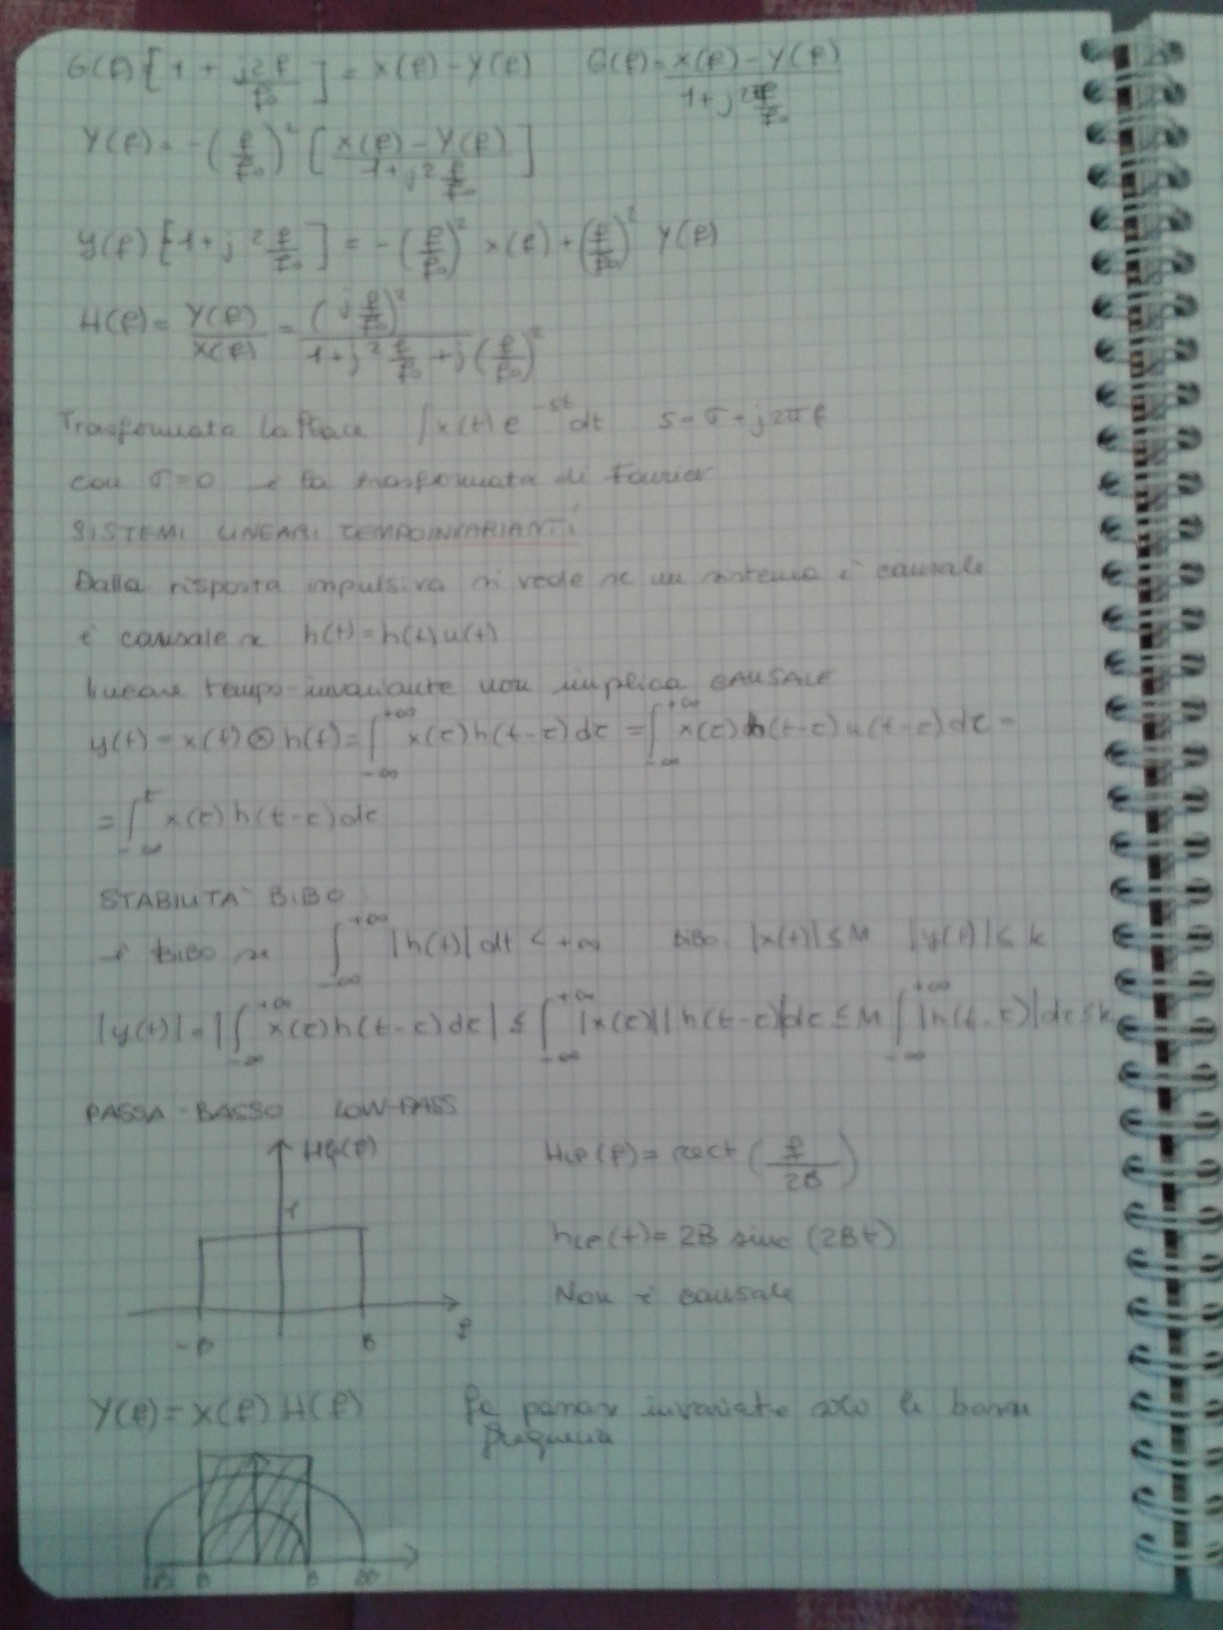 G(f) [1 + j2f/f₀] = X(f) - Y(f) G(f) = X(f) - Y(f) / 1 + j2 f/f₀
Y(f) = -(f/f₀)² [X(f) - Y(f) / 1 + j2 f/f₀]
Y(f) [1 + j 2 f/f₀] = -(f/f₀)² X(f) + (f/f₀)² Y(f)
H(f) = Y(f)/X(f) = (j f/f₀)² / 1 + j2 f/f₀ + j(f/f₀)²
Trasformata LaPlace ∫x(t) e^-st dt s = σ + j2πf
con σ=0 è la trasformata di Fourier
SISTEMI LINEARI TEMPOINVARIANTI
Dalla risposta impulsiva si vede se un sistema è causale
è causale se h(t) = h(t) u(t)
lineare tempo-invariante non implica CAUSALE
y(t) = x(t) ⊗ h(t) = ∫_-∞^+∞ x(τ) h(t-τ) dτ = ∫_-∞^+∞ x(τ) h(t-τ) u(t-τ) dτ =
= ∫_-∞^t x(τ) h(t-τ) dτ
STABILITA' BIBO
è BIBO se ∫_-∞^+∞ |h(t)| dt < +∞ BIBO: |x(t)| ≤ M |y(t)| ≤ k
|y(t)| = |∫_-∞^+∞ x(τ) h(t-τ) dτ| ≤ ∫_-∞^+∞ |x(τ)| |h(t-τ)| dτ ≤ M ∫_-∞^+∞ |h(t-τ)| dτ ≤ k
PASSA-BASSO LOW-PASS
H_LP(f) = rect(f/2B)
1
h_LP(t) = 2B sinc (2Bt)
Non è causale
-B B f
Y(f) = X(f) H(f) Fa passare invariate solo le basse
frequenze
B B